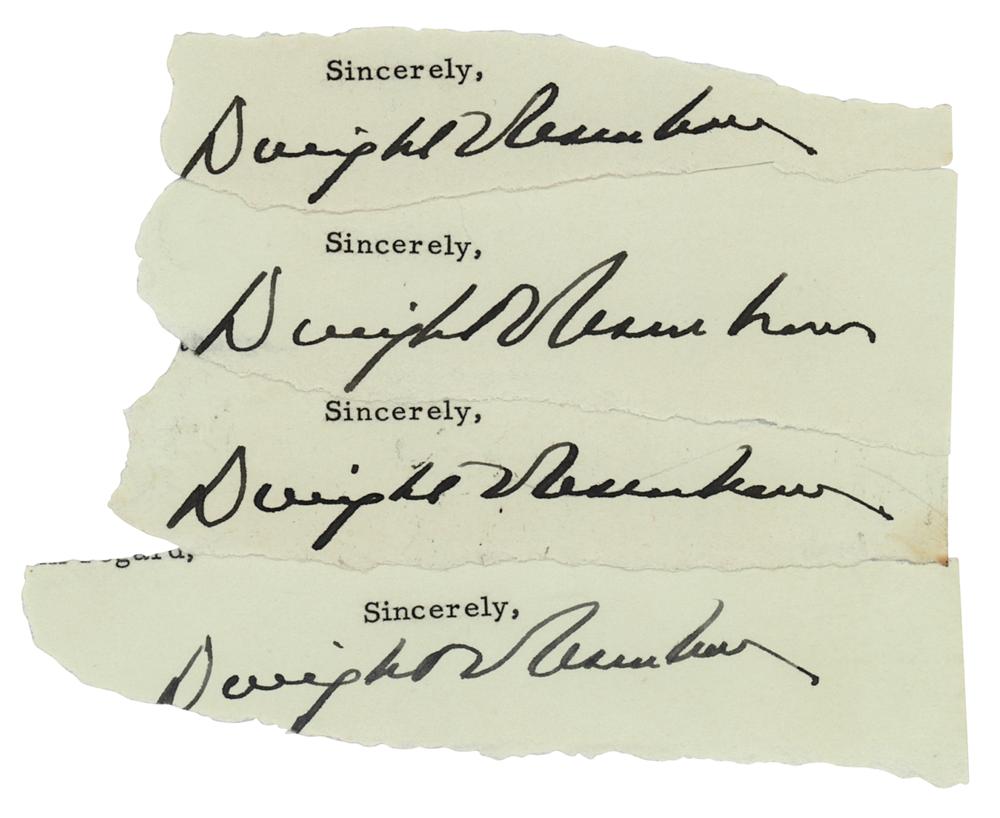 Sincerely,
Dwight D Eisenhower
Sincerely,
Dwight D Eisenhower
Sincerely,
Dwight D Eisenhower
regard,
Sincerely,
Dwight D Eisenhower